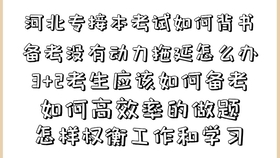 河北专接本考试如何背书
备考没有动力拖延怎么办
3+2考生应该如何备考
如何高效率的做题
怎样权衡工作和学习